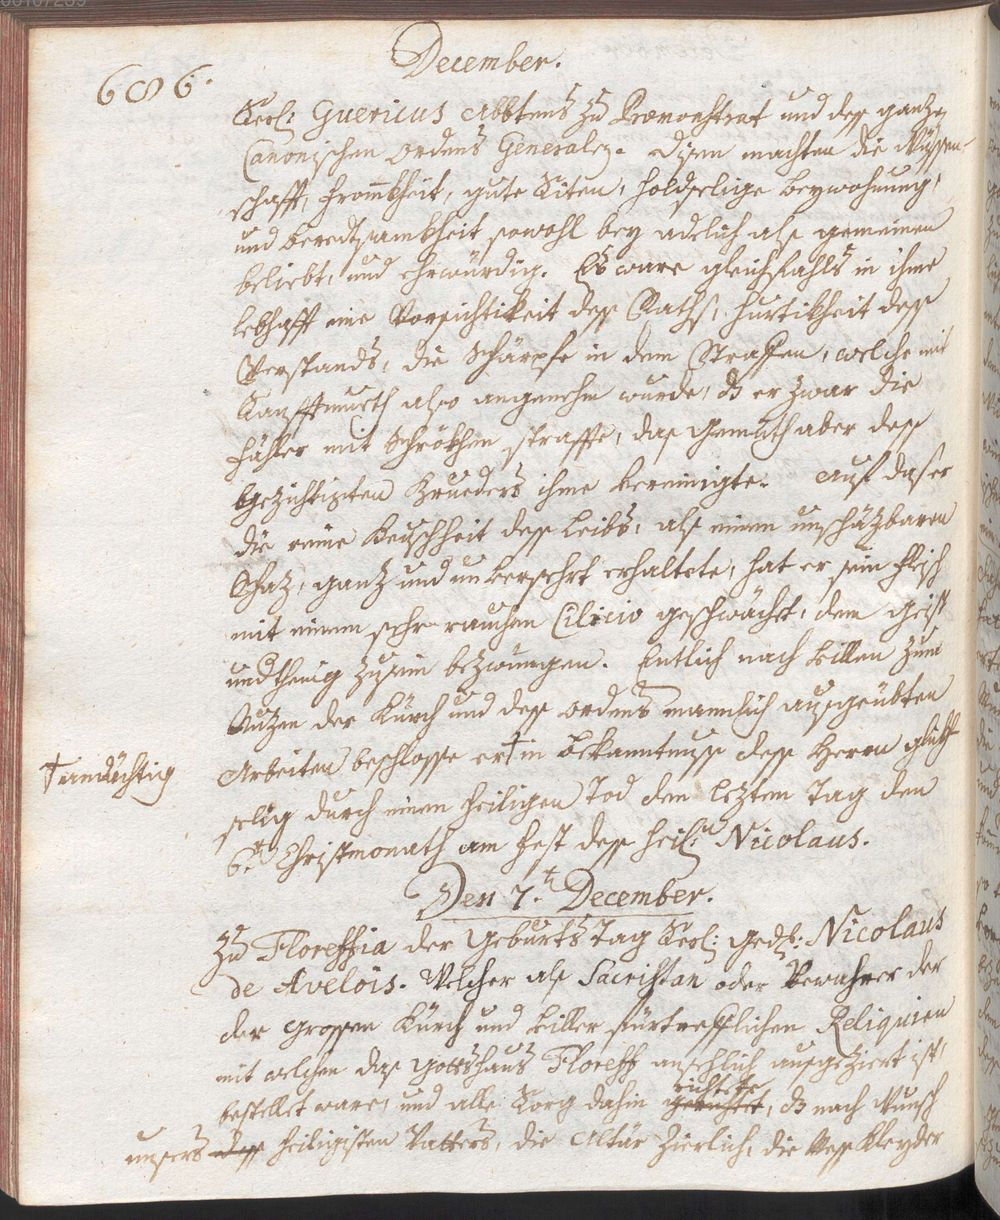 00107259
December.
686.
Seel: Guericus Abbtens zu Præmonstrat und deß ganzen
Canonischen Ordens Generalen. Disen machten die Wissen-
schafft, frommkheit, gute Siten, holdseelige beywohnung,
und beredtsamkheit sowohl bey adelich als gemeinen
beliebt, und ehrwürdig. Es ware gleichfahlls in ihme
lebhafft eine Vorsichtikeit deß Raths, hurtikheit deß
Verstands, die Schärpfe in dem Straffen, welche mit
Sanfftmueth also angenehm wurde, dz er zwar die
fähler mit Schrökhen straffte, das gemüth aber deß
bezichtigten Brueders ihme vereinigte. Auf daß er
die reine Keuschheit deß Leibs, als einen unschäzbaren
Schaz, ganz und unversehrt erhaltete, hat er sein fleisch
mit einem sehr rauchen Cilicio geschwächt, dem geist
underthenig zu sein bezwungen. Entlich nach villen zum
Nuzen der Kürch und deß Ordens mannlich ausgeübten
Arbeiten beschlosse er † in bekanntnuß deß Herrn glükh
† andächtig
selig durch einen heiligen Tod den lezten Tag den
6.ten Christmonath am fest deß heil: Nicolaus.
Den 7.t December.
Zu Floreffia der geburts Tag Seel: ged: Nicolaus
de Avelois. Welcher als Sacristan oder bewahrer der
der grossen Kürch und viller fürtrefflichen Reliquien
mit welchen das gottshaus Floreff ansehlich ausgeziert ist,
bestellet ware, und alle Sorg dahin richtete, dz nach Wunsch
unsers heiligisten Vatters, die Altär zierlich, die Meßkleyder